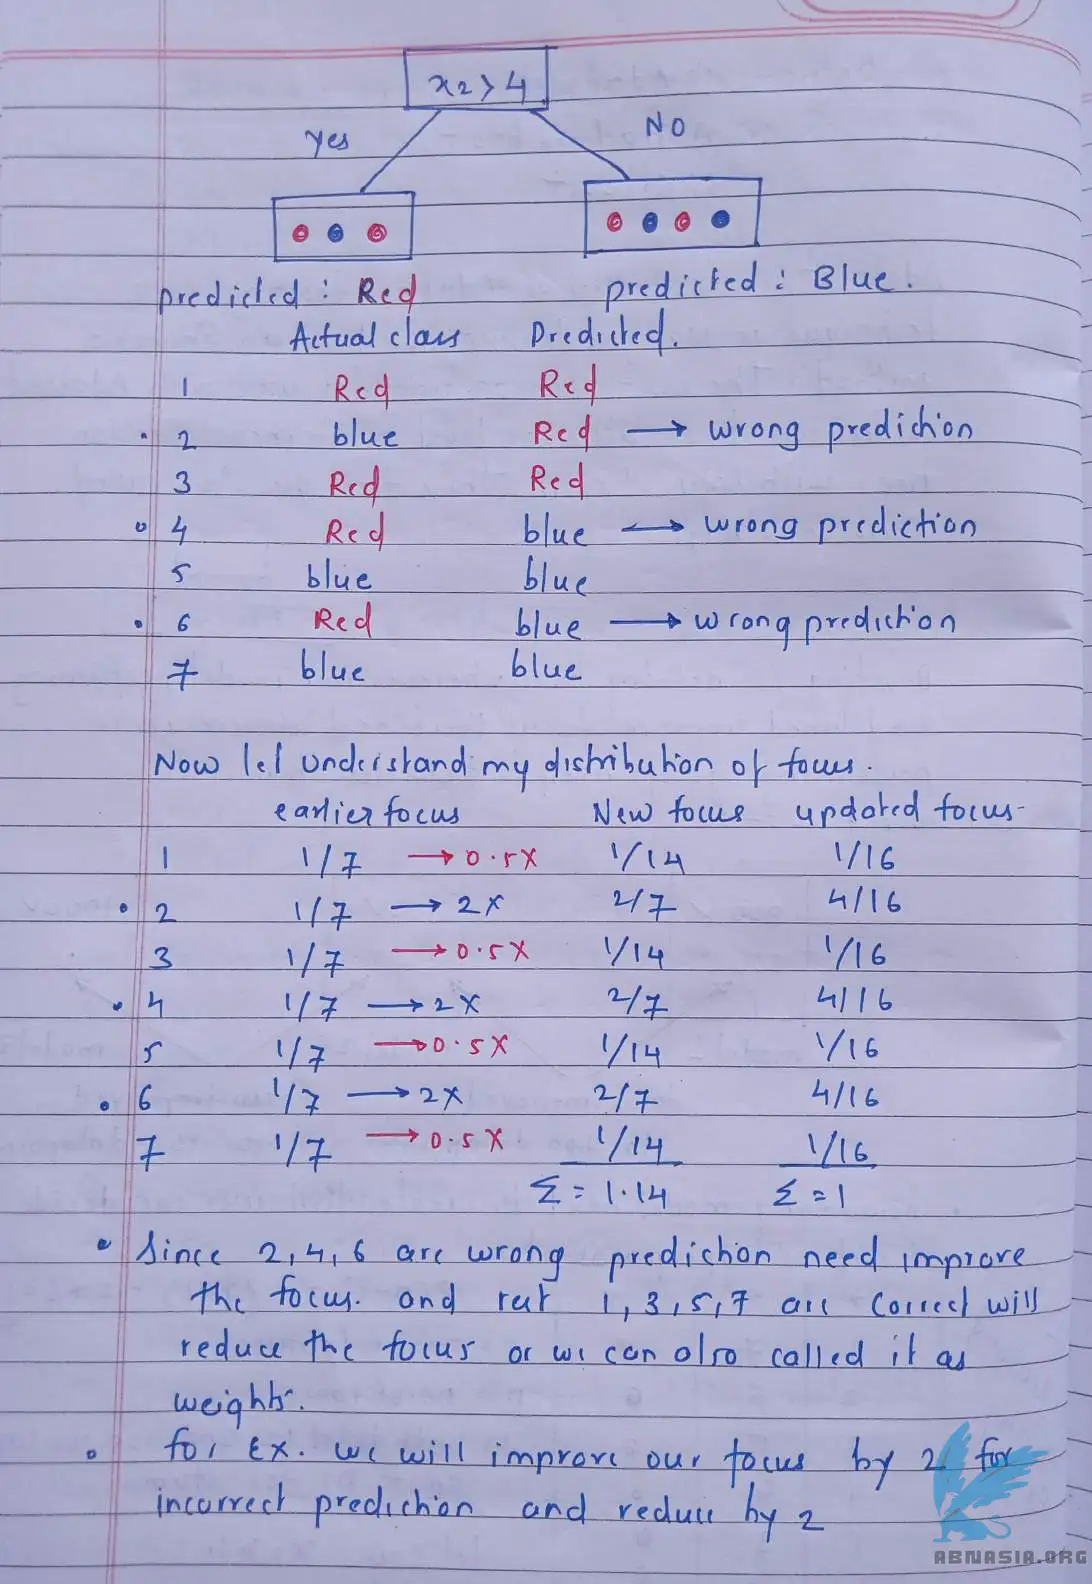 x2 > 4
Yes NO
predicted : Red predicted : Blue.
Actual class Predicted.
1 Red Red
2 blue Red → wrong prediction
3 Red Red
4 Red blue → wrong prediction
5 blue blue
6 Red blue → wrong prediction
7 blue blue
Now let understand my distribution of focus.
earlier focus New focus updated focus
1 1/7 → 0.5X 1/14 1/16
2 1/7 → 2X 2/7 4/16
3 1/7 → 0.5X 1/14 1/16
4 1/7 → 2X 2/7 4/16
5 1/7 → 0.5X 1/14 1/16
6 1/7 → 2X 2/7 4/16
7 1/7 → 0.5X 1/14 1/16
Σ = 1.14 Σ = 1
• Since 2, 4, 6 are wrong prediction need improve
the focus. and rest 1, 3, 5, 7 are correct will
reduce the focus or we can also called it as
weights.
for Ex. we will improve our focus by 2 for
incorrect prediction and reduce by 2
ABNASIA.ORG